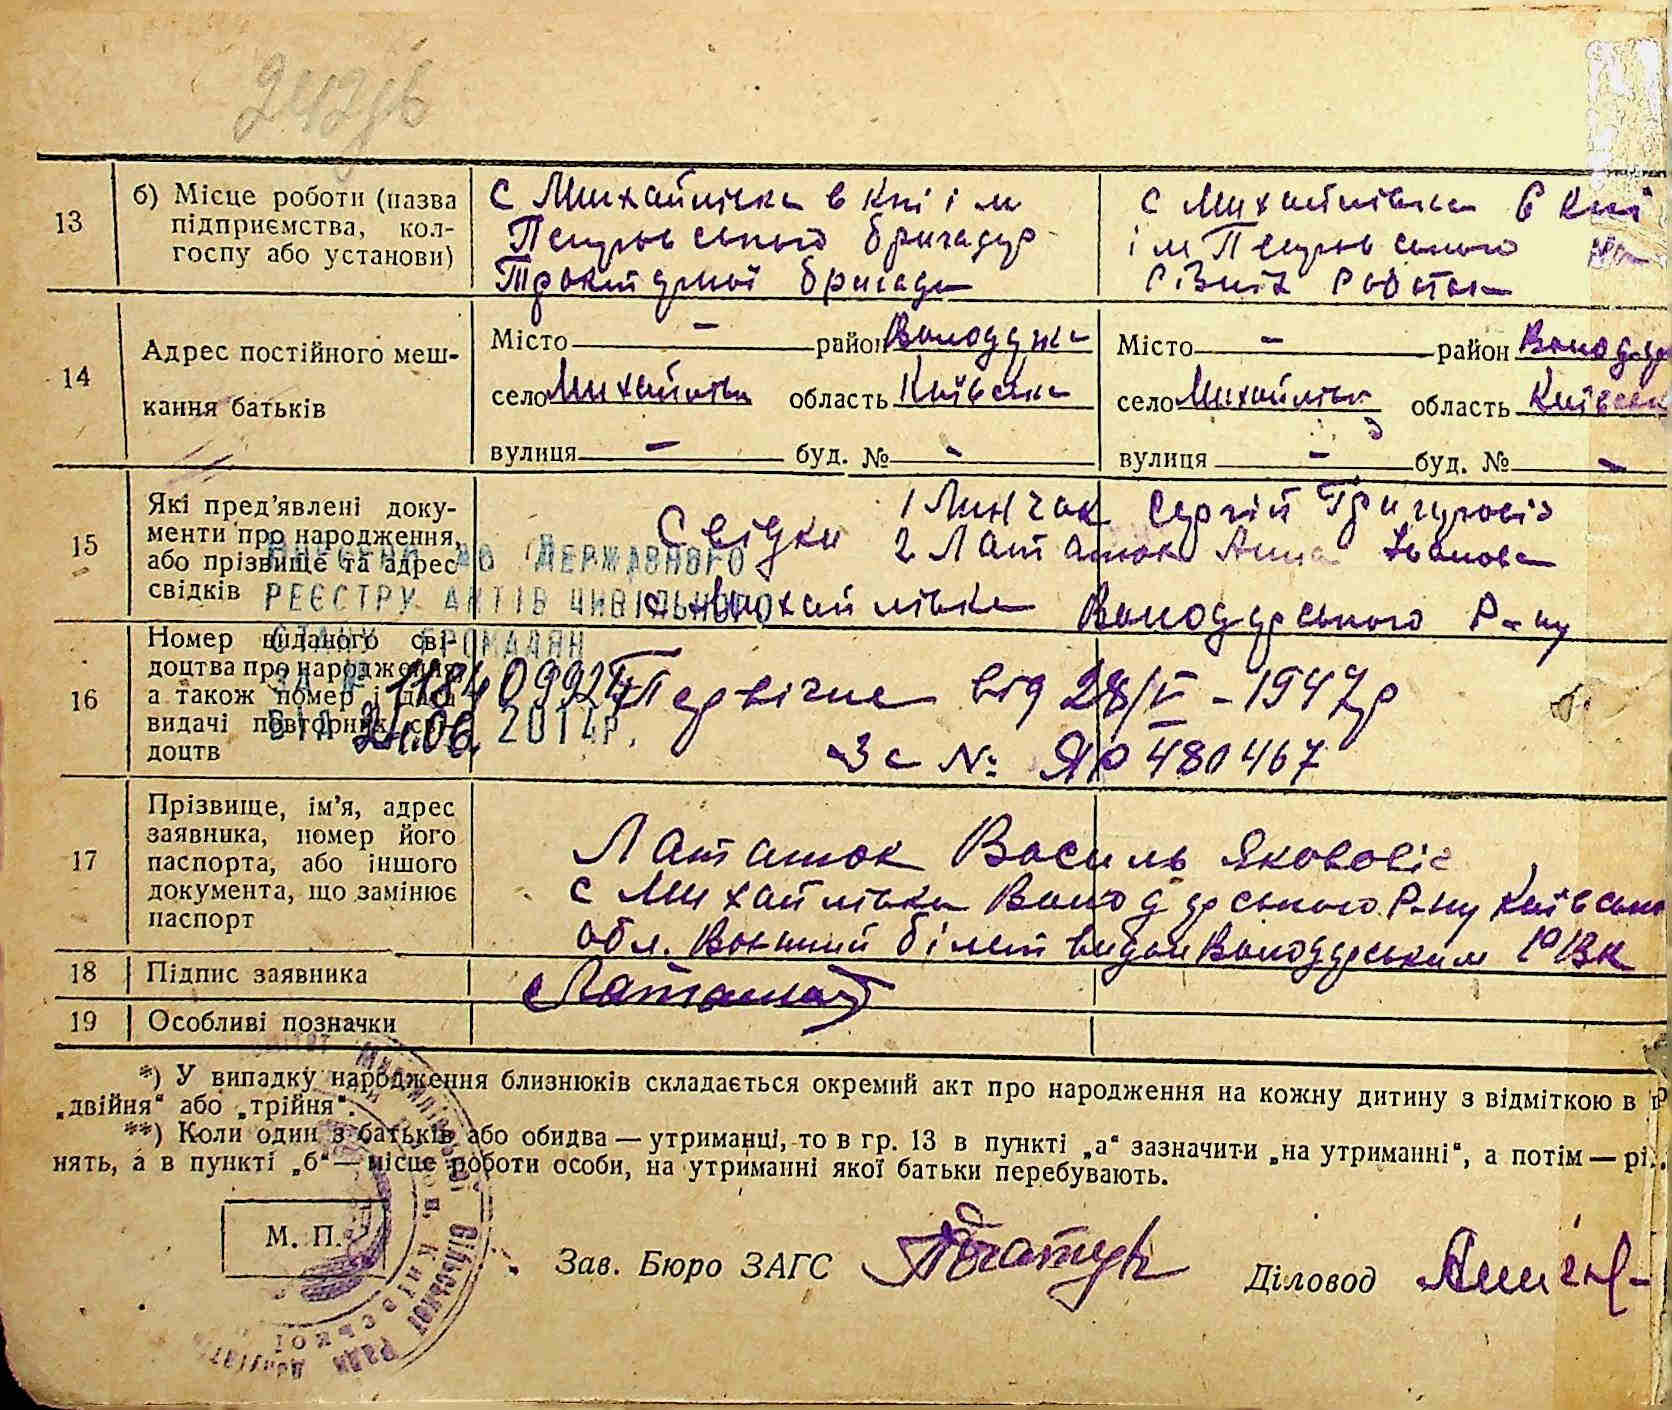 13
б) Місце роботи (назва
підприємства, кол-
госпу або установи)
с Михайлівка в к-пі ім
Петровського бригадир
Тракторної бригади
с Михайлівка в к-пі
ім Петровського на
різних роботах
14
Адрес постійного меш-
кання батьків
Місто — район Володарка
село Михайлівка область Київська
вулиця — буд. № -
Місто — район Володар
село Михайлівка область Київськ
вулиця — буд. № -
15
Які пред'явлені доку-
менти про народження,
або прізвище та адрес
свідків
Свідки
1 Линчак Сергій Григорович
2 Латанюк Анна Іванова
с Михайлівка Володарського Р-ну
ВНЕСЕНО ДО ДЕРЖАВНОГО
РЕЄСТРУ АКТІВ ЦИВІЛЬНОГО
СТАНУ ГРОМАДЯН
ВІД 24.06. 2014р.
16
Номер виданого сві-
доцтва про народження,
а також номер і дата
видачі повторних сві-
доцтв
Первічне від 28/V – 1947р
За № ЯР 480467
17
Прізвище, ім'я, адрес
заявника, номер його
паспорта, або іншого
документа, що замінює
паспорт
Латанюк Василь Якововіч
с Михайлівка Володарського Р-ну Київсько
обл. Воєнний білет видан Володарським РВК
18
Підпис заявника
19
Особливі позначки
*) У випадку народження близнюків складається окремий акт про народження на кожну дитину з відміткою в
„двійня“ або „трійня“.
**) Коли один з батьків або обидва — утриманці, то в гр. 13 в пункті „а“ зазначити „на утриманні“, а потім — рі
нять, а в пункті „б“ — місце роботи особи, на утриманні якої батьки перебувають.
М. П.
Зав. Бюро ЗАГС
Діловод